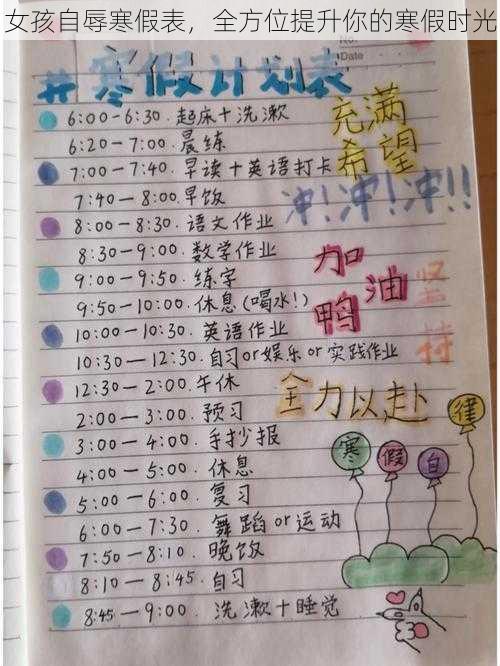 女孩自辱寒假表，全方位提升你的寒假时光
No.
Date
寒假计划表
6:00-6:30.起床+洗漱
充满
6:20-7:00.晨练
希望
7:00-7:40.早读+英语打卡
7:40-8:00.早饭
冲!冲!冲!!
8:00-8:30.语文作业
8:30-9:00.数学作业
加油鸭
9:00-9:50.练字
坚持
9:50-10:00.休息(喝水!)
10:00-10:30.英语作业
10:30-12:30.自习or娱乐or实践作业
12:30-2:00.午休
全力以赴
2:00-3:00.预习
寒假自律
3:00-4:00.手抄报
4:00-5:00.休息
5:00-6:00.复习
6:00-7:30.舞蹈or运动
7:50-8:10-晚饭
8:10-8:45.自习
8:45-9:00.洗漱+睡觉